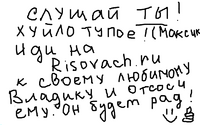 СЛУШАЙ ТЫ!
ХУЙЛО ТУПОЕ!(Максик
иди на
Risovach.ru
к своему любимому
Владику и отсоси
ему. Он будет рад!